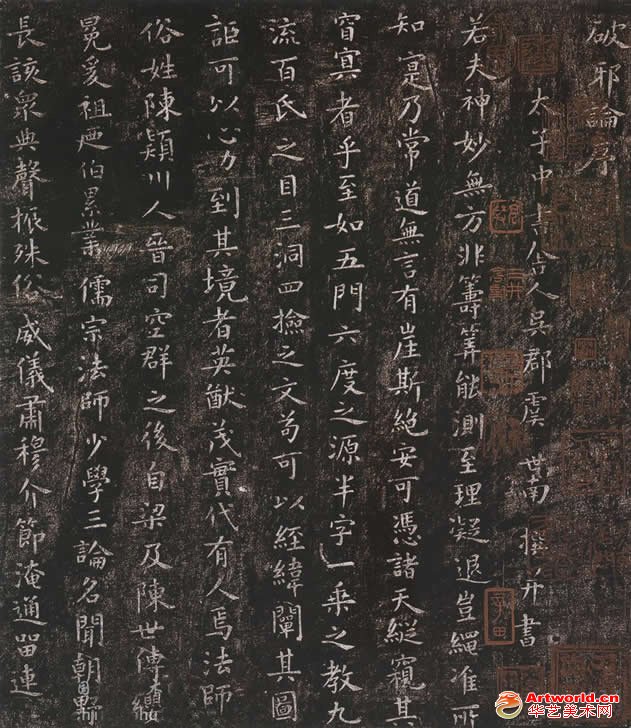 破邪論序
太子中書舍人吳郡虞世南撰并書
若夫神妙無方非籌筭能測至理凝退豈繩准所
知寔乃常道無言有崖斯絕安可憑諸天縱窺其
窅冥者乎至如五門六度之源半字一乘之教九
流百氏之目三洞四撿之文苟可以經緯闡其圖
詎可以心力到其境者英猷茂實代有人焉法師
俗姓陳潁川人晉司空群之後自梁及陳世傳纓
冕爰祖及伯累業儒宗法師少學三論名聞朝野
長該衆典聲振殊俗威儀肅穆介節淹通留連
Artworld.cn
华艺美术网